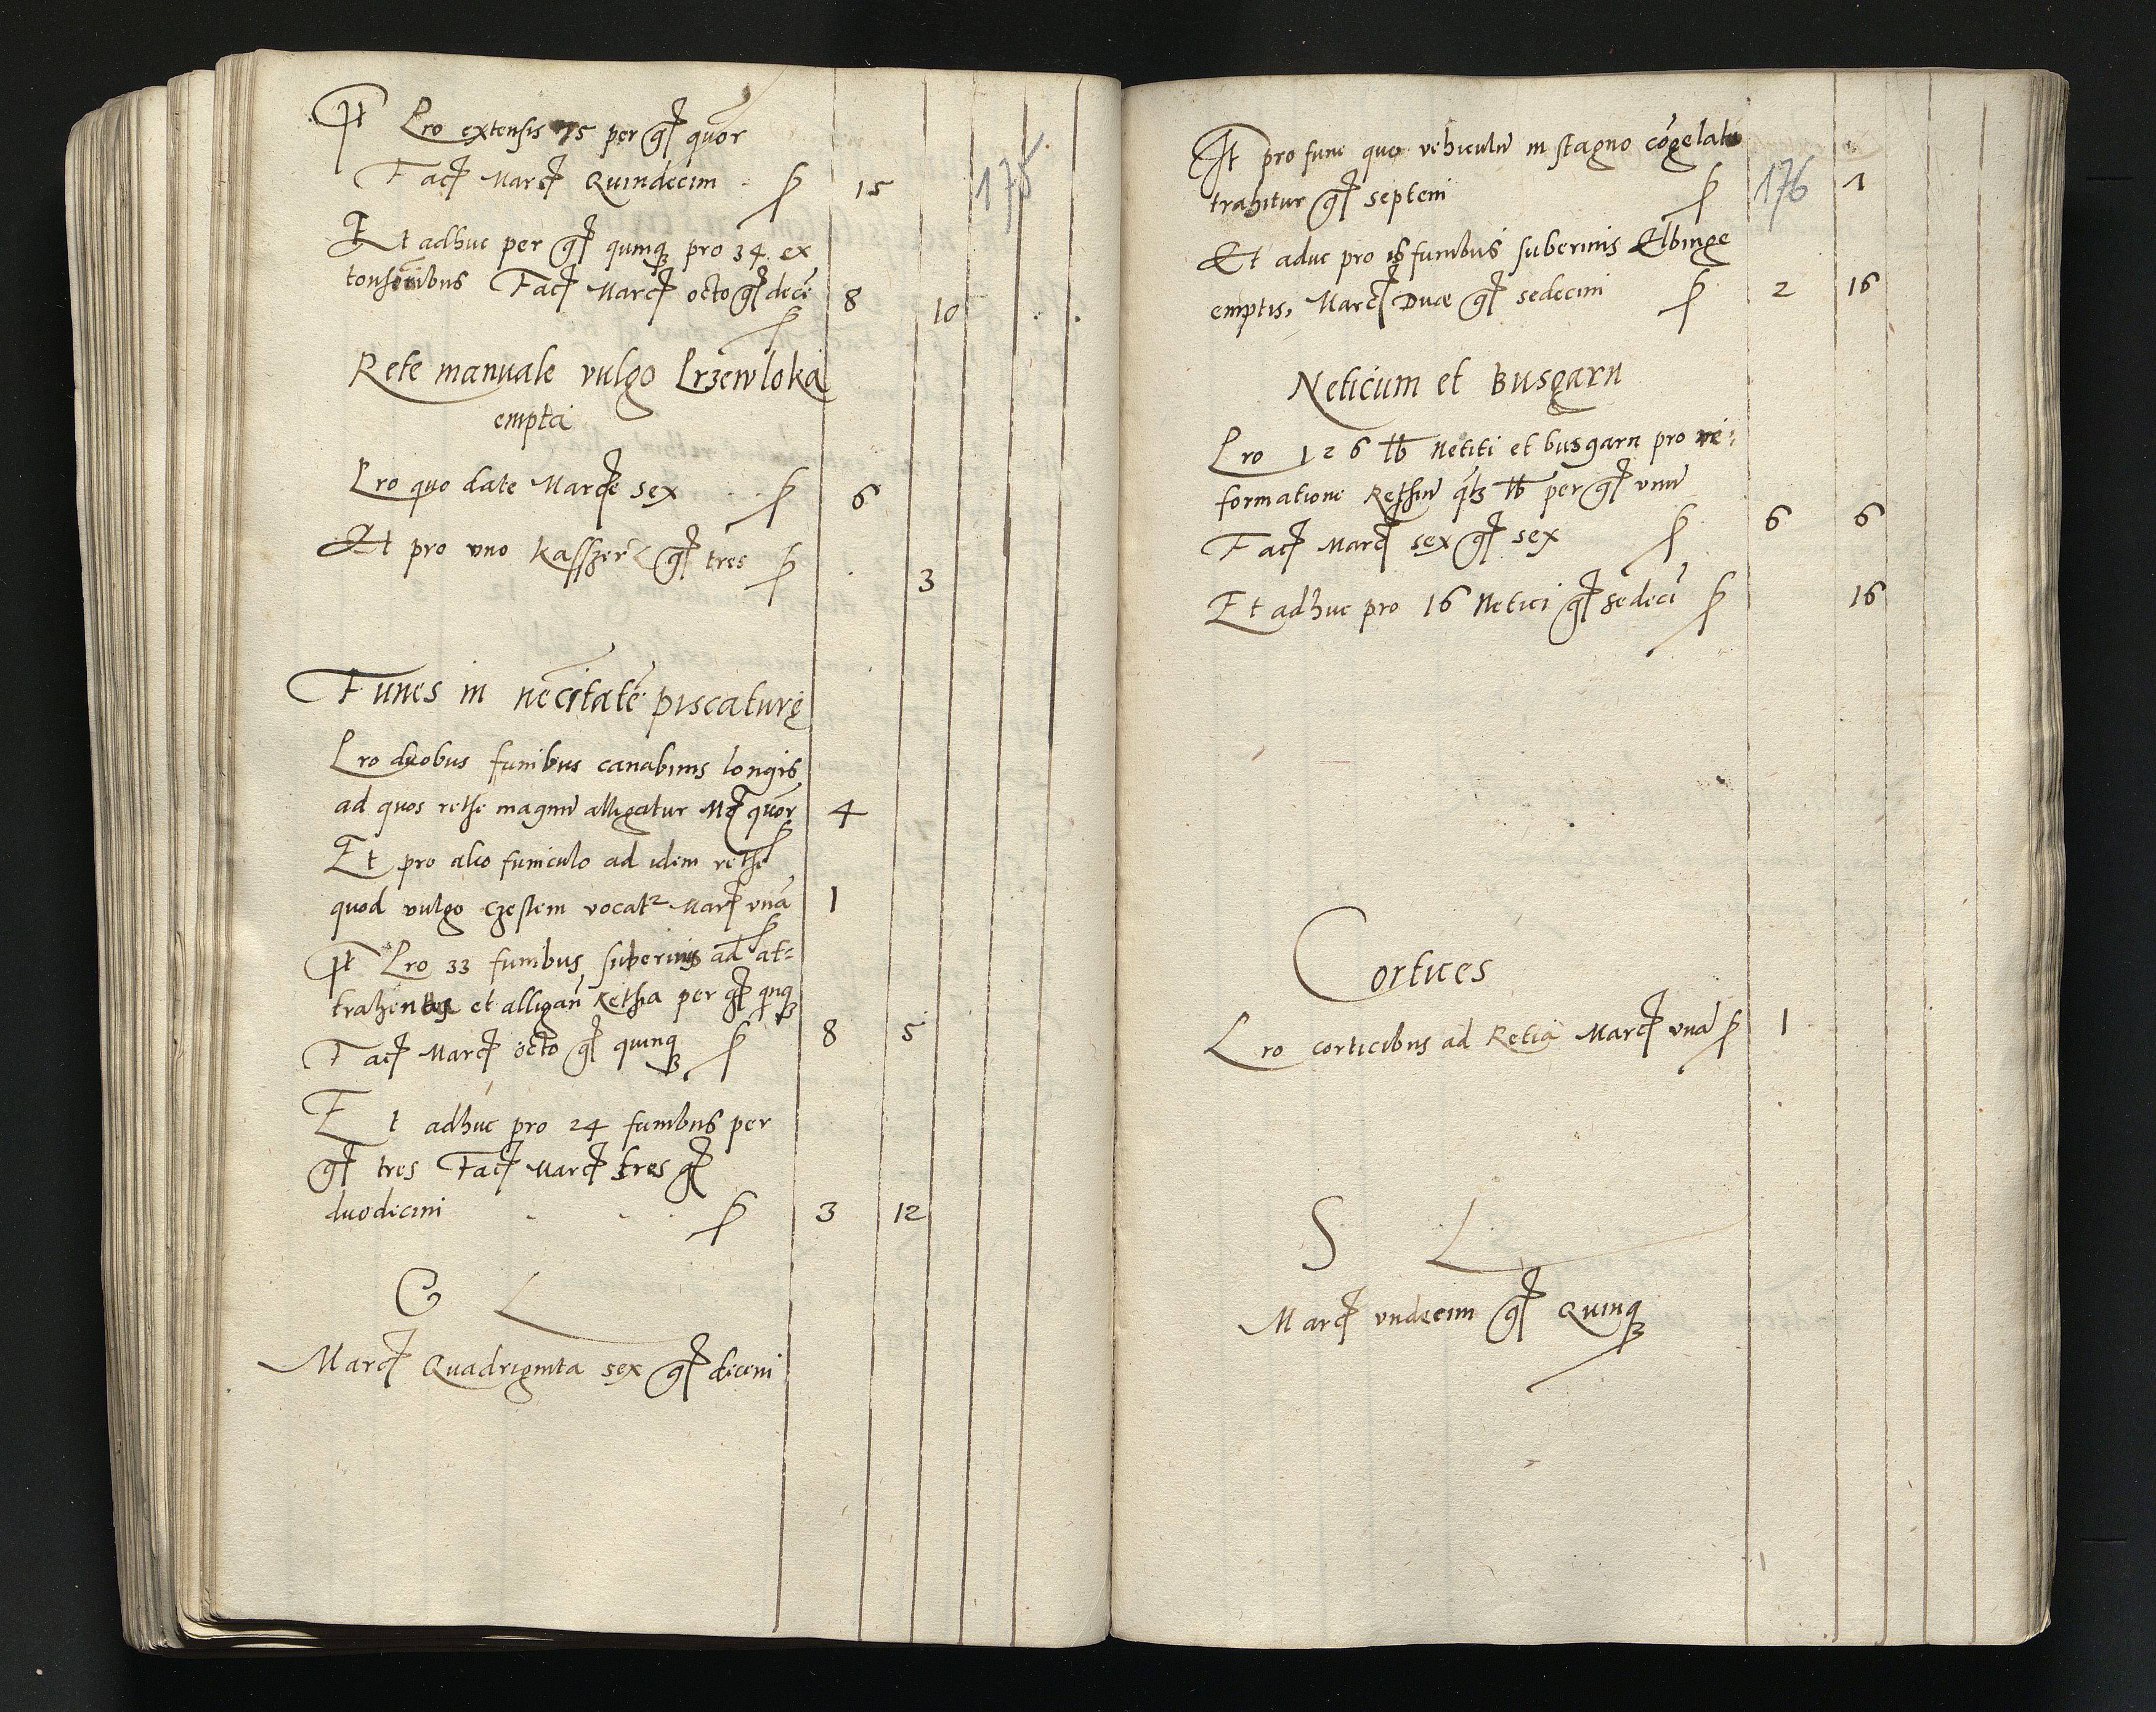 It Pro extensis 75 per gr quor
Fact Marc Quindecim 15
175
Et adhuc per gr quinq pro 34 ex
tensoribus Fact Marc octo gr decē 8 10
Rete manuale vulgo Przewloka
empta
Pro quo date Marce sex 6
Et pro uno Kasszer gr tres 3
Funes in necitatē piscaturę
Pro duobus funibus canabinis longis
ad quos rethe magnū alligatur Mr quor 4
Et pro alio funiculo ad idem rethe
quod vulgo czestem vocat Mar unā 1
It Pro 33 funibus suberinis ad at=
trahen et alligan Retha per gr qnq
Fact Marc octo gr quinq 8 5
Et adhuc pro 24 funibus per
gr tres Fact Marc tres gr
duodecim 3 12
G L
Marc Quadriginta sex gr decem
It pro fune quo vehiculū in stagno cōgelato
trahitur gr septem 1
176
Et aduc pro 18 funibus suberinis Elbinge
emptis, Marc Duæ gr sedecim 2 16
Neticum et Busgarn
Pro 126 lb Netici et busgarn pro re:
formatione Rethiū lb per gr unū
Fact Marc sex gr sex 6 6
Et adhuc pro 16 Netici gr sedeci 16
Cortices
Pro corticibus ad Retia Marc unā 1
S L
Marc undecim gr Quinq